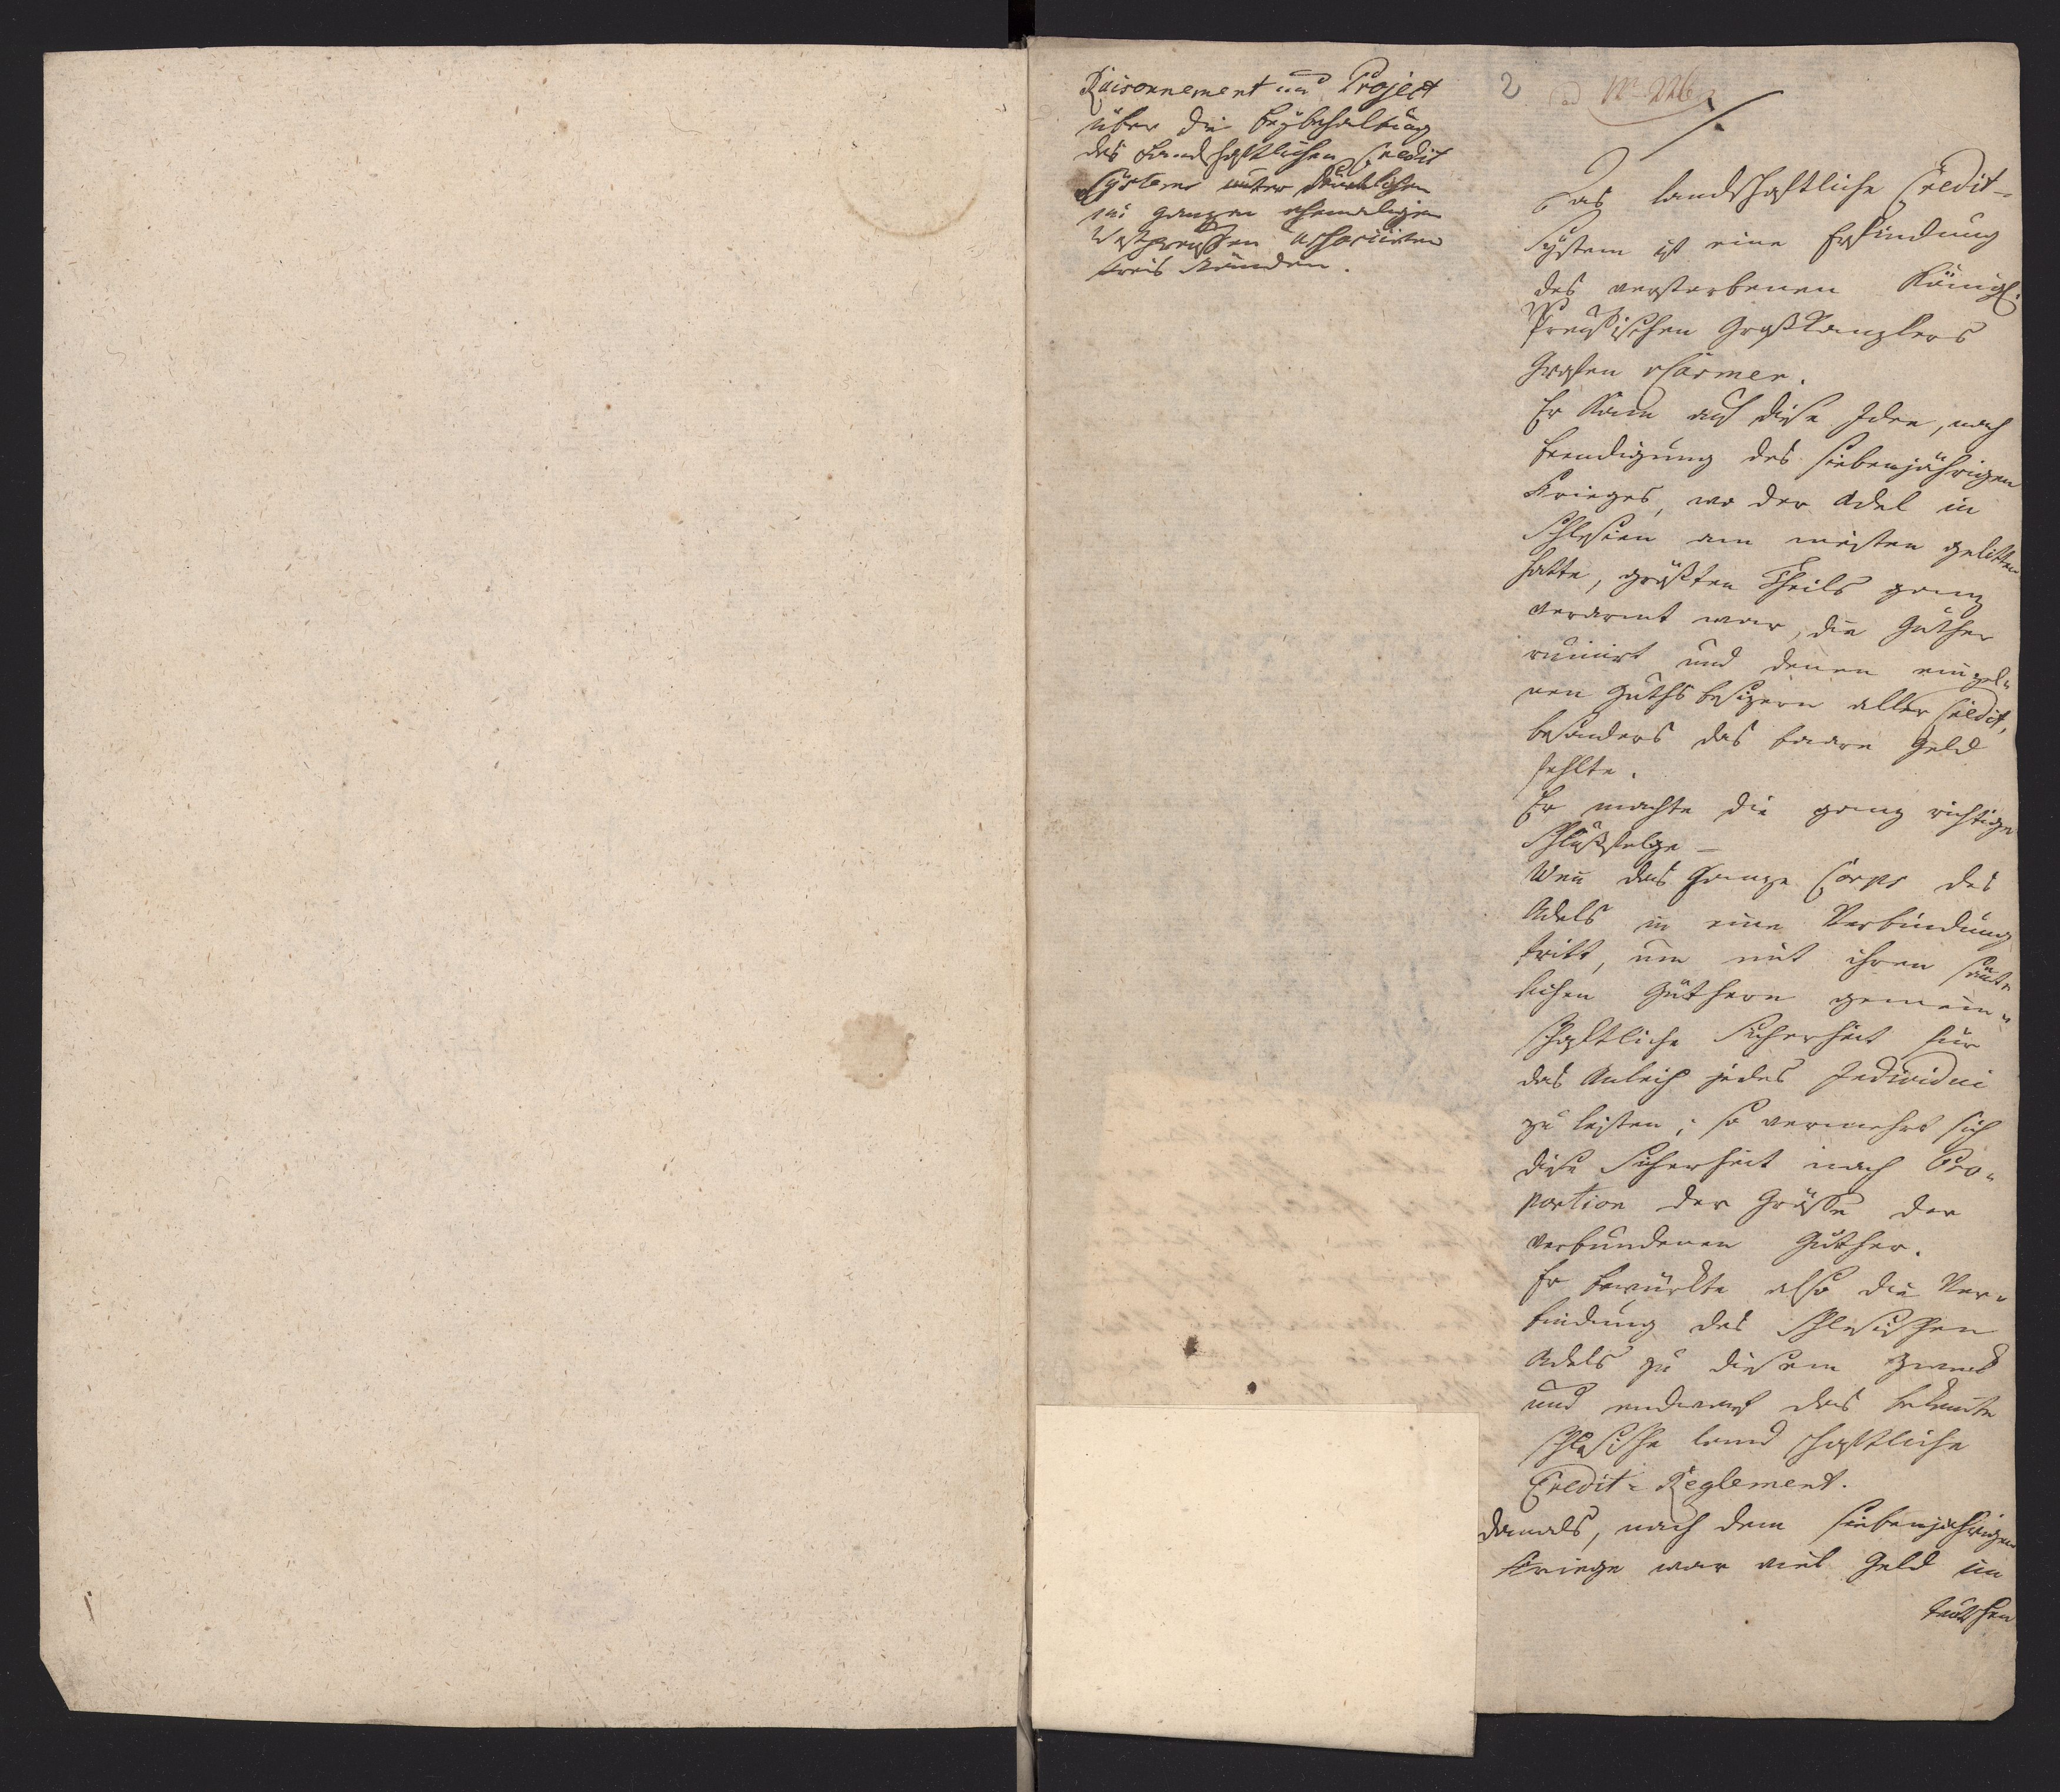 Raisonnement und Project
über die Beybehaltung
des Landschaftlichen Credit
Systems unter sämtlichen
im ganzen ehemaligen
Westpreußen associirten
Kreis Ständen.
2
ad No
Das landschaftliche Credit-
System ist eine Erfindung
des verstorbenen Königl.
Preußischen Großkanzlers
Grafen v Carmer.
Er kam auf diese Idee, nach
Beendigung des siebenjährigen
Krieges, wo der Adel in
Schlesien am meisten gelitten
hatte, größten Theils ganz
verarmt war, die Güther
ruinirt und denen einzel„
nen Guths besizern aller Credit,
besonders das baare Geld
fehlte.
Er machte die ganz richtige
Schlußfolge —
Wen̄ das Ganze Corps des
Adels in eine Verbindung
tritt, um mit ihren sämt„
lichen Güthern gemein„
schaftliche Sicherheit für
das Anleih jedes Individui
zu leisten; so vermehrt sich
diese Sicherheit nach Pro„
portion der Größe der
verbundenen Güther.
Er bewürkte also die Ver„
bindung des Schlesischen
Adels zu diesem Zweck
und entwarf das bekante
schlesische land schaftliche
Credit- Reglement.
Damals, nach dem siebenjährigen
Kriege war viel Geld im